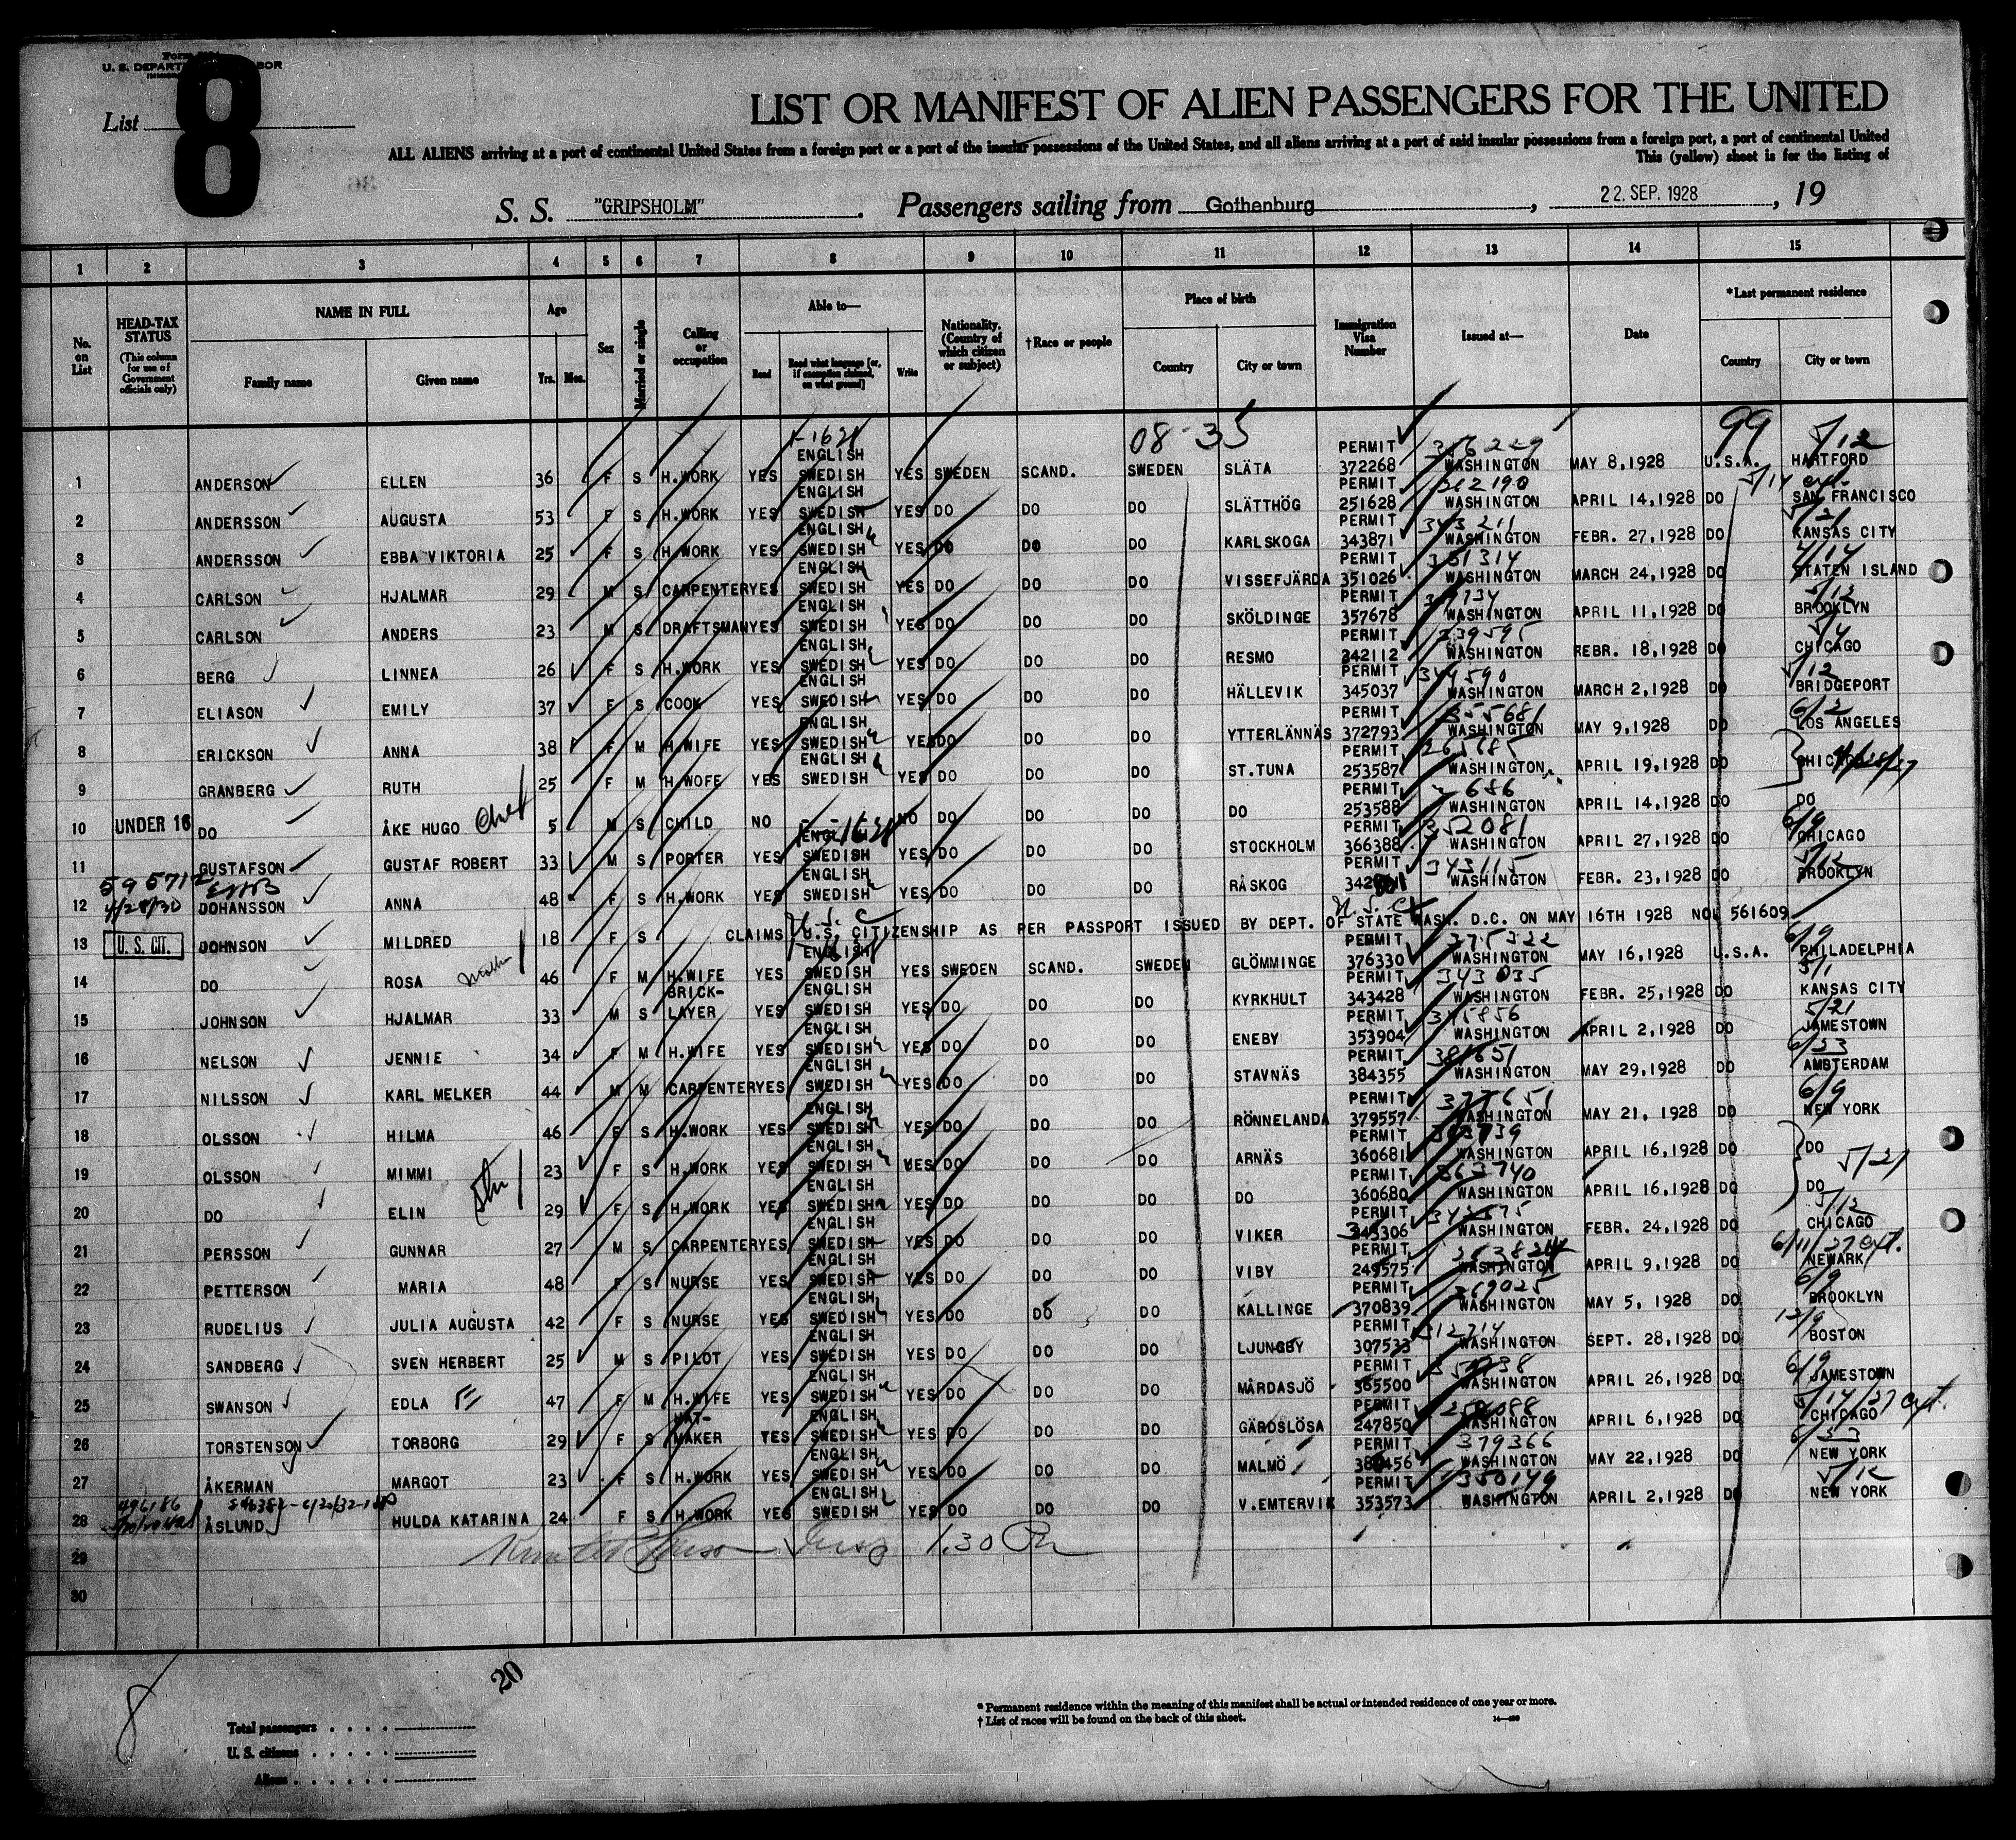 Form
U. S. DEPART BOR
List 8
LIST OR MANIFEST OF ALIEN PASSENGERS FOR THE UNITED
ALL ALIENS arriving at a port of continental United States from a foreign port or a port of the insular possessions of the United States, and all aliens arriving at a port of said insular possessions from a foreign port, a port of continental United
This (yellow) sheet is for the listing of
S. S. "GRIPSHOLM". Passengers sailing from Gothenburg, 22. SEP. 1928, 19
1 2 3 4 5 6 7 8 9 10 11 12 13 14 15
No. on List
HEAD-TAX STATUS (This column for use of Government officials only)
NAME IN FULL Family name Given name
Age Yrs. Mos.
Sex
Married or single
Calling or occupation
Able to— Read Read what language [or, if exemption claimed, on what ground] Write
Nationality. (Country of which citizen or subject)
†Race or people
Place of birth Country City or town
Immigration Visa Number
Issued at—
Date
*Last permanent residence Country City or town
08-35 99
1 ANDERSON ELLEN 36 F S H.WORK YES ENGLISH SWEDISH YES SWEDEN SCAND. SWEDEN SLÄTA PERMIT 372268 WASHINGTON MAY 8,1928 U.S.A. HARTFORD 5/12
2 ANDERSSON AUGUSTA 53 F S H.WORK YES ENGLISH SWEDISH YES DO DO DO SLÄTTHÖG PERMIT 251628 WASHINGTON APRIL 14,1928 DO SAN FRANCISCO
3 ANDERSSON EBBA VIKTORIA 25 F S H.WORK YES ENGLISH SWEDISH YES DO DO DO KARLSKOGA PERMIT 343871 343211 WASHINGTON FEBR. 27,1928 DO KANSAS CITY 5/21
4 CARLSON HJALMAR 29 M S CARPENTER YES ENGLISH SWEDISH YES DO DO DO VISSEFJÄRDA PERMIT 351026 351314 WASHINGTON MARCH 24,1928 DO STATEN ISLAND 4/14
5 CARLSON ANDERS 23 M S DRAFTSMAN YES ENGLISH SWEDISH YES DO DO DO SKÖLDINGE PERMIT 357678 WASHINGTON APRIL 11,1928 DO BROOKLYN 5/12
6 BERG LINNEA 26 F S H.WORK YES ENGLISH SWEDISH YES DO DO DO RESMO PERMIT 342112 WASHINGTON REBR. 18,1928 DO CHICAGO 5/4
7 ELIASON EMILY 37 F S COOK YES ENGLISH SWEDISH YES DO DO DO HÄLLEVIK PERMIT 345037 344590 WASHINGTON MARCH 2,1928 DO BRIDGEPORT 5/12
8 ERICKSON ANNA 38 F M H.WIFE YES ENGLISH SWEDISH YES DO DO DO YTTERLÄNNÄS PERMIT 372793 355681 WASHINGTON MAY 9,1928 DO LOS ANGELES 6/2
9 GRANBERG RUTH 25 F M H.WOFE YES ENGLISH SWEDISH YES DO DO DO ST.TUNA PERMIT 253587 WASHINGTON APRIL 19,1928 DO CHICAGO
10 UNDER 16 DO ÅKE HUGO 5 M S CHILD NO NO DO DO DO DO PERMIT 253588 WASHINGTON APRIL 14,1928 DO DO
11 GUSTAFSON GUSTAF ROBERT 33 M S PORTER YES ENGLISH SWEDISH YES DO DO DO STOCKHOLM PERMIT 366388 352081 WASHINGTON APRIL 27,1928 DO CHICAGO 6/9
595712
12 4/28/30 JOHANSSON ANNA 48 F S H.WORK YES ENGLISH SWEDISH YES DO DO DO RÅSKOG PERMIT 343115 WASHINGTON FEBR. 23,1928 DO BROOKLYN 5/12
13 U.S. CIT. JOHNSON MILDRED 18 F S CLAIMS U.S. CITIZENSHIP AS PER PASSPORT ISSUED BY DEPT. OF STATE WASH. D.C. ON MAY 16TH 1928 NO. 561609
14 DO ROSA mother 46 F M H.WIFE YES ENGLISH SWEDISH YES SWEDEN SCAND. SWEDEN GLÖMMINGE PERMIT 376330 WASHINGTON MAY 16,1928 U.S.A. PHILADELPHIA 6/9
15 JOHNSON HJALMAR 33 M S BRICK-LAYER YES ENGLISH SWEDISH YES DO DO DO KYRKHULT PERMIT 343428 343035 WASHINGTON FEBR. 25,1928 DO KANSAS CITY 5/1
16 NELSON JENNIE 34 F M H.WIFE YES ENGLISH SWEDISH YES DO DO DO ENEBY PERMIT 353904 WASHINGTON APRIL 2,1928 DO JAMESTOWN 5/21
17 NILSSON KARL MELKER 44 M M CARPENTER YES ENGLISH SWEDISH YES DO DO DO STAVNÄS PERMIT 384355 WASHINGTON MAY 29,1928 DO AMSTERDAM 6/23
18 OLSSON HILMA 46 F S H.WORK YES ENGLISH SWEDISH YES DO DO DO RÖNNELANDA PERMIT 379557 WASHINGTON MAY 21, 1928 DO NEW YORK 6/9
19 OLSSON MIMMI 23 F S H.WORK YES ENGLISH SWEDISH YES DO DO DO ARNÄS PERMIT 360681 WASHINGTON APRIL 16,1928 DO DO 5/21
20 DO ELIN 29 F S H.WORK YES ENGLISH SWEDISH YES DO DO DO DO PERMIT 360680 363740 WASHINGTON APRIL 16,1928 DO DO
21 PERSSON GUNNAR 27 M S CARPENTER YES ENGLISH SWEDISH YES DO DO DO VIKER PERMIT 345306 WASHINGTON FEBR. 24,1928 DO CHICAGO 5/12
22 PETTERSON MARIA 48 F S NURSE YES ENGLISH SWEDISH YES DO DO DO VIBY PERMIT 249575 WASHINGTON APRIL 9,1928 DO NEWARK
23 RUDELIUS JULIA AUGUSTA 42 F S NURSE YES ENGLISH SWEDISH YES DO DO DO KALLINGE PERMIT 370839 369025 WASHINGTON MAY 5, 1928 DO BROOKLYN 6/9
24 SANDBERG SVEN HERBERT 25 M S PILOT YES ENGLISH SWEDISH YES DO DO DO LJUNGBY PERMIT 307533 WASHINGTON SEPT. 28,1928 DO BOSTON 12/9
25 SWANSON EDLA 47 F M H.WIFE YES ENGLISH SWEDISH YES DO DO DO MÅRDASJÖ PERMIT 365500 WASHINGTON APRIL 26,1928 DO JAMESTOWN 6/9
26 TORSTENSON TORBORG 29 F S HAT-MAKER YES ENGLISH SWEDISH YES DO DO DO GÄRDSLÖSA PERMIT 247850 WASHINGTON APRIL 6,1928 DO CHICAGO
27 ÅKERMAN MARGOT 23 F S H.WORK YES ENGLISH SWEDISH YES DO DO DO MALMÖ PERMIT 379366 WASHINGTON MAY 22,1928 DO NEW YORK
28 ÅSLUND HULDA KATARINA 24 F S H.WORK YES ENGLISH SWEDISH YES DO DO DO V.EMTERVIK PERMIT 353573 350149 WASHINGTON APRIL 2,1928 DO NEW YORK 5/12
29 1.30 Pm
30
20
8
Total passengers
U. S. citizens
Aliens
* Permanent residence within the meaning of this manifest shall be actual or intended residence of one year or more.
† List of races will be found on the back of this sheet.